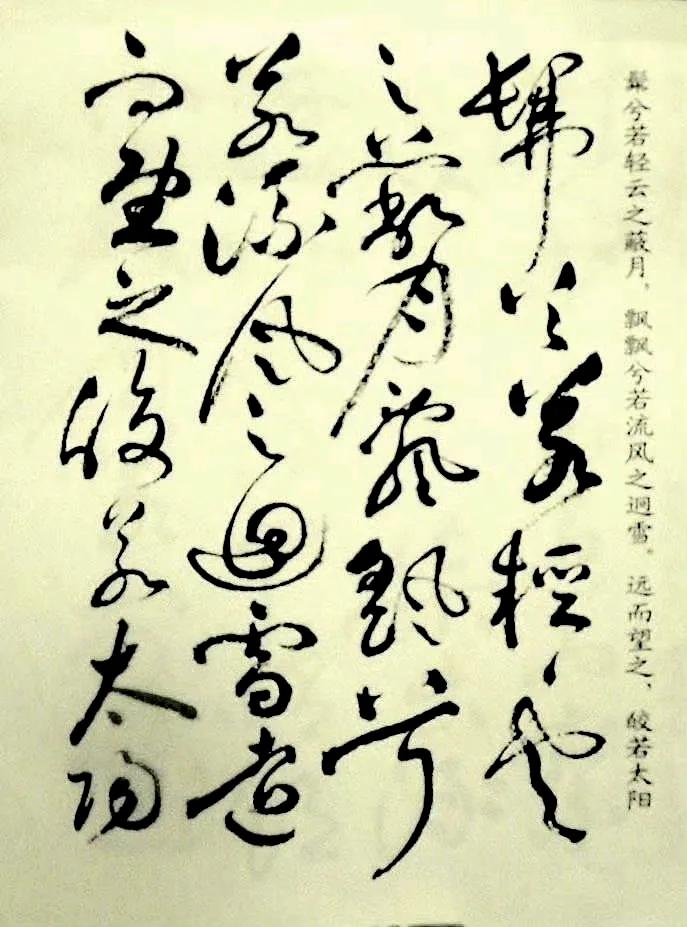 髴兮若轻云之蔽月，飘飘兮若流风之迥雪。远而望之，皎若太阳
髴兮若輕雲
之蔽月飄飄兮
若流風之迴雪遠
而望之皎若太陽